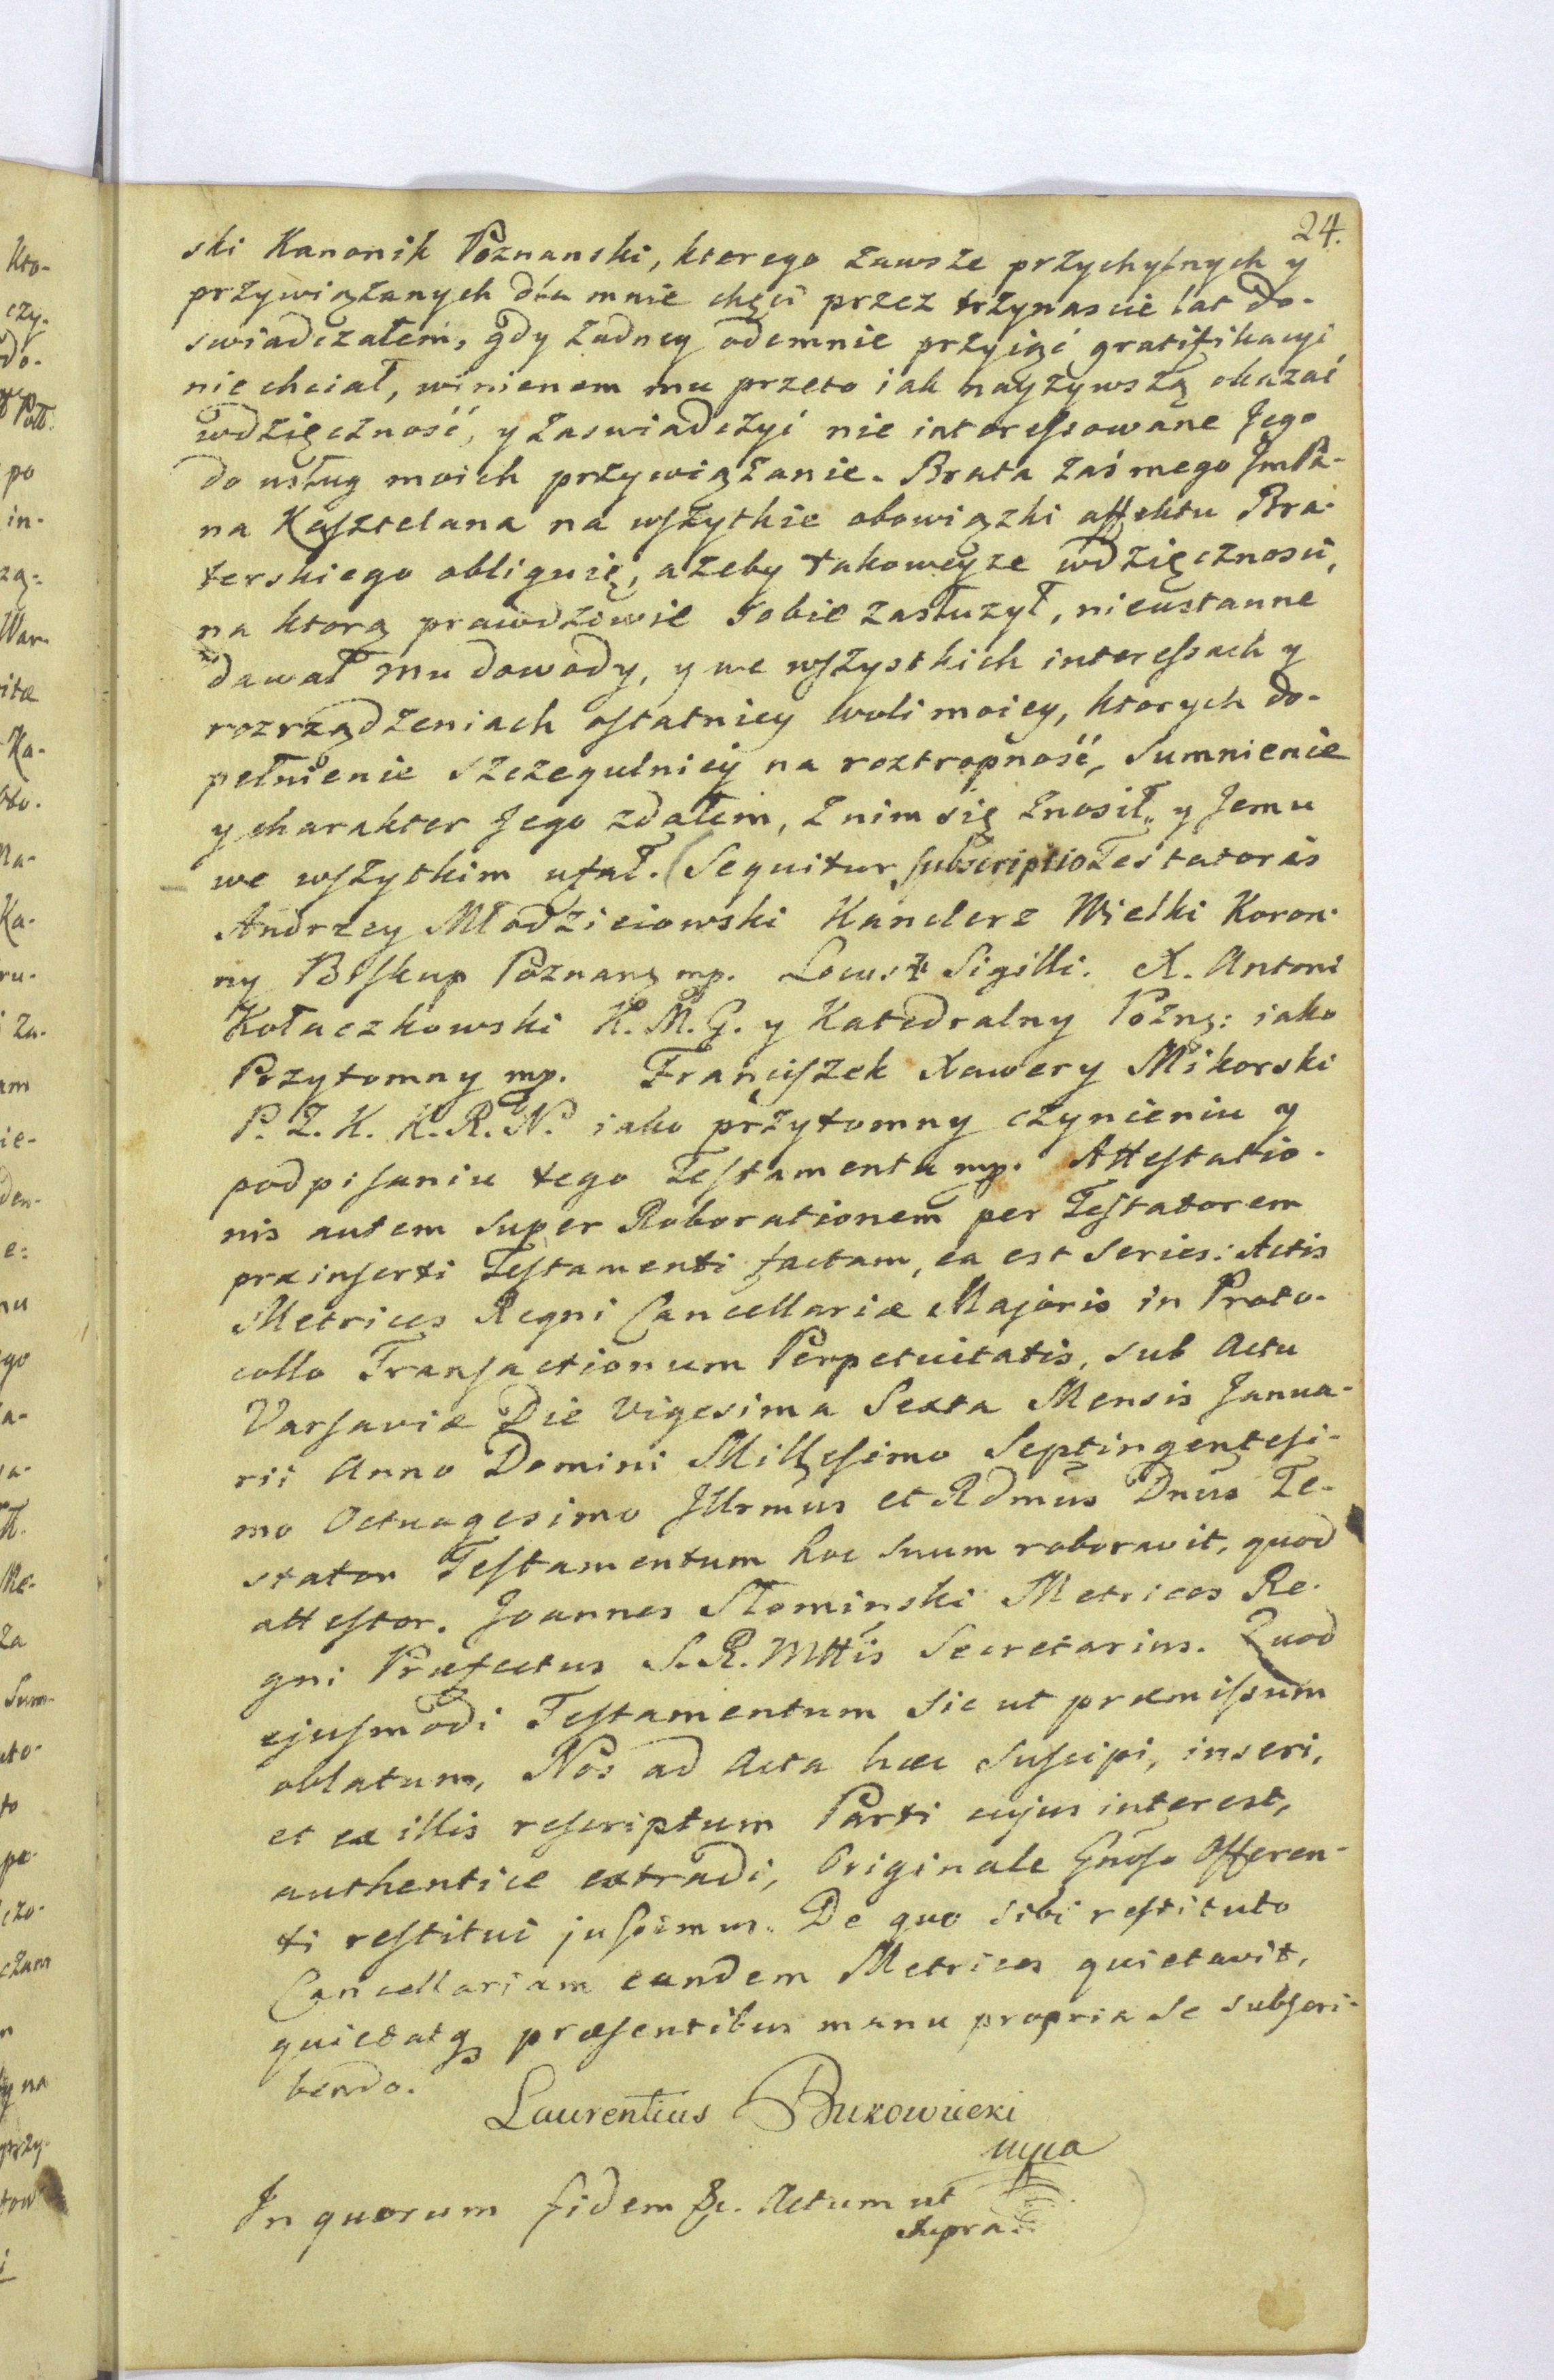 24.
ski Kanonik Poznanski, kterego zawsze przychylnych y
przywiązanych dla mnie chęci przez trzynascie lat do-
swiadczałem, gdy żadney odemnie przyiąć gratifikacyi
nie chciał, winienem mu przeto iak nayżywszą okazać
wdzięczność, y zaswiadczyć nie interessowane Jego
do usług moich przywiązanie. Brata zaś mego JmPa-
na Kasztelana na wszytkie obowiązki affektu Bra-
terskiego obliguię, ażeby takoweyże wdzięcznosci,
na ktorą prawdziwie sobie zasłużył, nieustanne
dawał mu dowody, y we wszystkich interessach y
rozrządzeniach ostatniey woli moiey, ktorych do-
pełnienie szczegulniey na roztropność, Sumnienie
y charakter Jego zdałem, z nim się znosił, y Jemu
we wszytkim ufał. (Sequitur subscriptio Testatoris
Andrzey Młodzieiowski Kanclerz Wielki Koron-
ny Biskup Poznanȝ mp. Locus ‡ Sigilli. X. Antoni
Kołaczkowski K. M. G. y Katedralny Poznȝ: iako
Przytomny mp. Franciszek Xawery Mikorski
P. Z. K. K. R. N. iako przytomny czynieniu y
podpisaniu tego Testamentu mp. Attestatio-
nis autem super Roborationem per Testatorem
præinserti Testamenti factam, ea est series: Actis
Metrices Regni Cancellariæ Majoris in Proto-
collo Transactionum Perpetuitatis, sub Actu
Varsaviæ Die Vigesima Sexta Mensis Janua-
rii Anno Domini Millesimo Septingentesi-
mo Octuagesimo Jllrmus et Rdmus Dnus Te-
stator Testamentum hoc suum roboravit, quod
attestor. Joannes Słominski Metrices Re-
gni Præfectus S. R. Mttis Secretarius. Quod
ejusmodi Testamentum sic ut præmissum
oblatum, Nos ad Acta hæc suscipi, inseri,
et ex illis rescriptum Parti cujus interest,
authentice extradi, Originale Gnoso Offeren-
ti restitui jussimus. De quo sibi restituto
Cancellariam eandem Metrices quietavit,
quietatqȝ præsentibus manu propria se subscri-
bendo.
Laurentius Bukowiecki
mpa
In quorum fidem &c. Actum ut
supra.